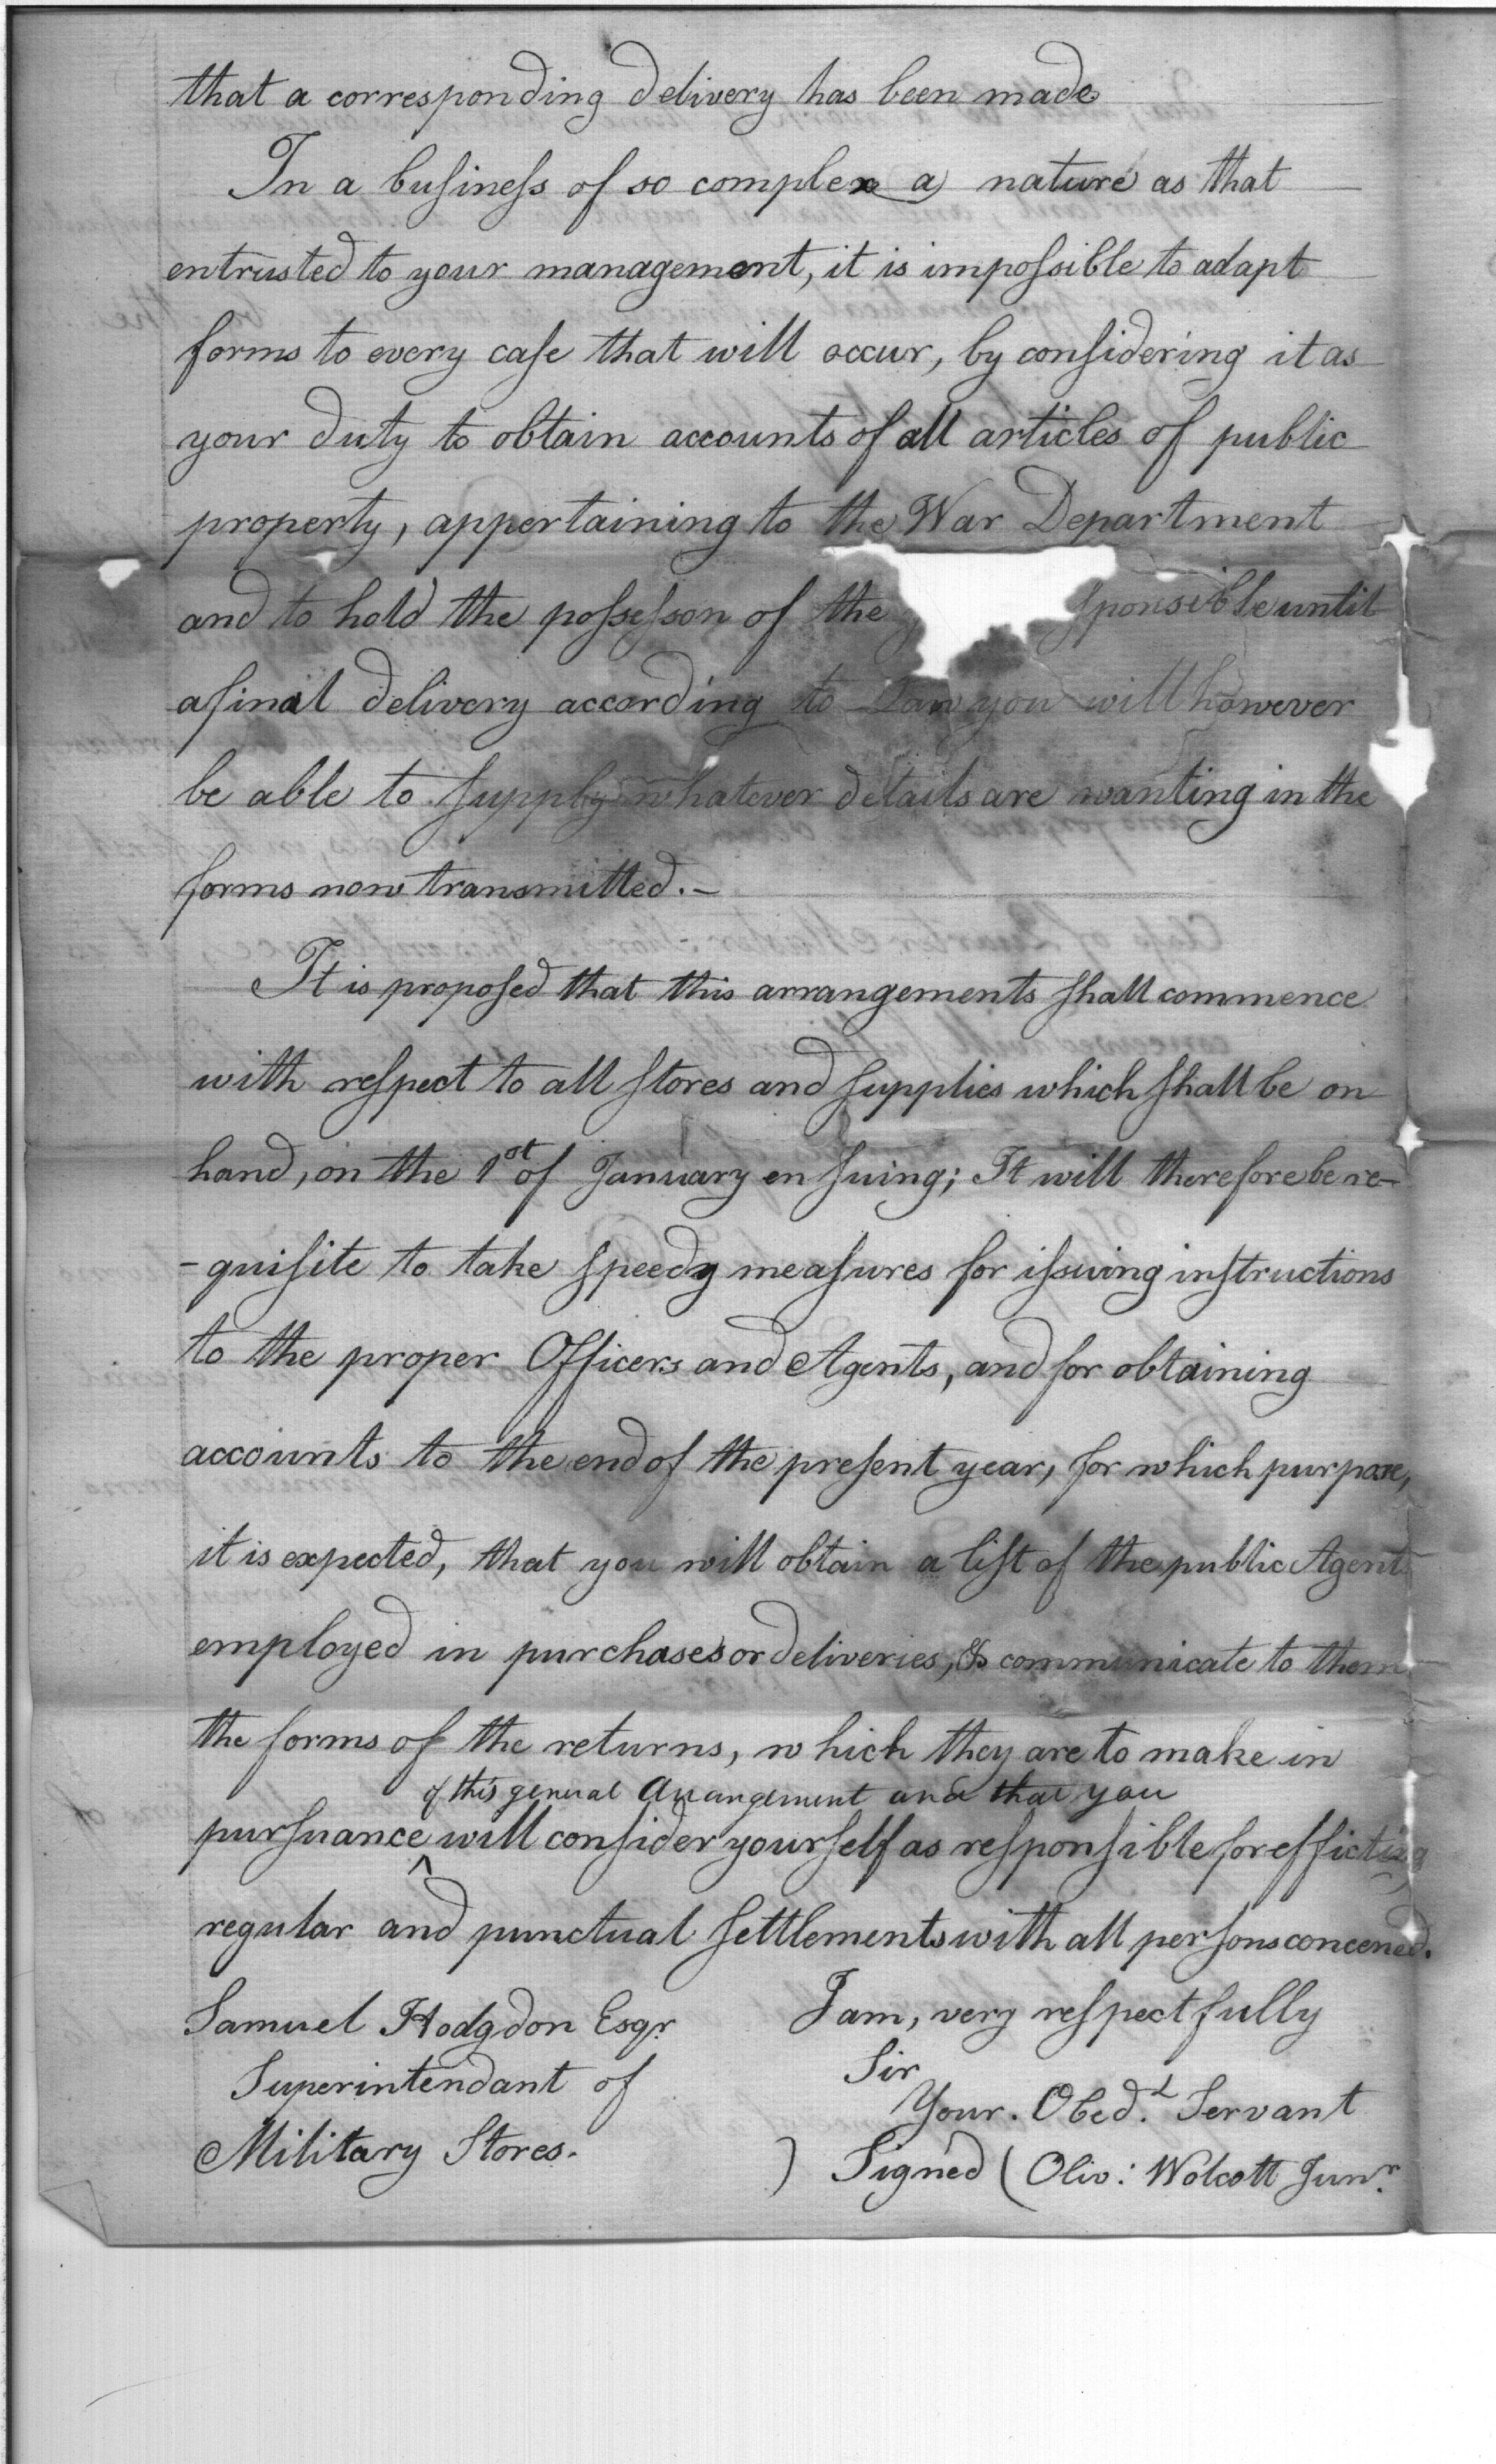 that a corresponding delivery has been made
In a business of so complex a nature as that
entrusted to your management, it is impossible to adapt
forms to every case that will occur, by considering it as
your duty to obtain accounts of all articles of public
property, appertaining to the War Department
and to hold the possesson of the sponsible until
a final delivery according to Law you will however
be able to supply whatever details are wanting in the
forms now transmitted.-
It is proposed that this arrangements shall commence
with respect to all stores and supplies which shall be on
hand, on the 1st of January ensuing; It will therefore be re-
-quisite to take speedy measures for issuing instructions
to the proper Officers and Agents, and for obtaining
accounts to the end of the present year, for which purpose,
it is expected, that you will obtain a list of the public Agents
employed in purchases or deliveries, & communicate to them
the forms of the returns, which they are to make in
of this general Arrangement and that you
pursuance ^ will consider yourself as responsible for efficting
regular and punctual settlements with all persons concened.
Samuel Hodgdon Esqr.
Superintendant of
Military Stores.
I am, very respectfully
Sir
Your. Obed.t Servant
) Signed ( Oliv: Wolcott Junr.